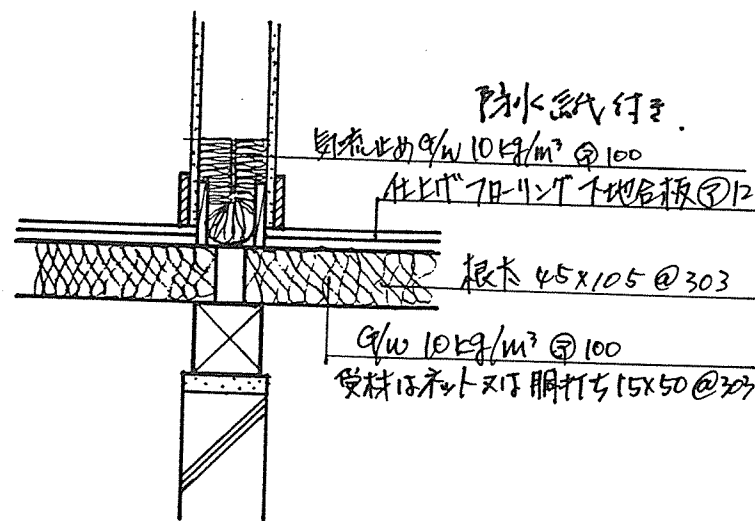 防水紙付き.
気流止め G/W 10kg/m³ ㋐100
仕上げフローリング下地合板㋐12
根太 45×105 @303
G/W 10kg/m³ ㋐100
受材はネット又は胴打ち 15×50 @303